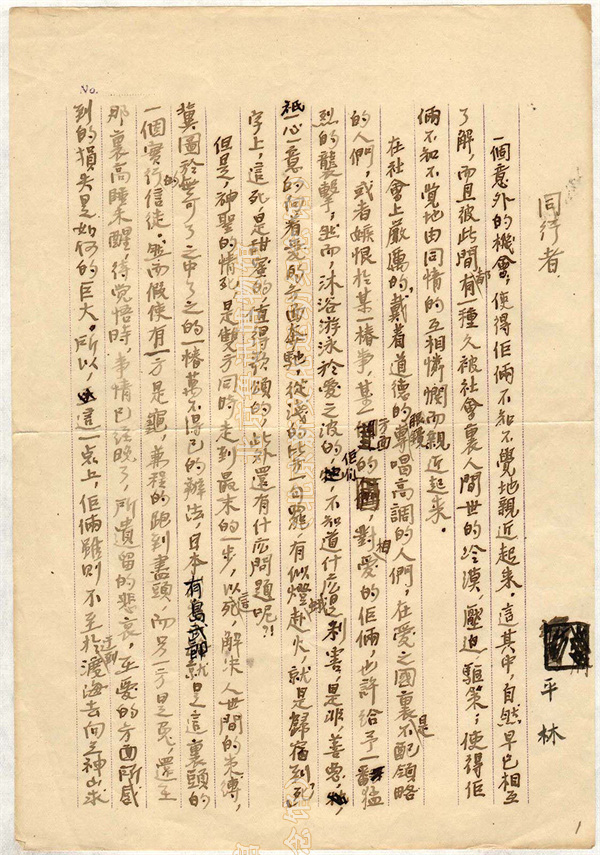 同行者
平林
一個意外的機會，使得佢倆不知不覺地親近起來。這其中，自然早已相互
了解，而且彼此間都有一種久被社會裏人間世的冷漠，壓迫，驅策；使得佢
倆不知不覺地由同情的互相憐憫而親近起來。
在社會上嚴厲的，戴着道德的眼鏡，專唱高調的人們，在愛之國裏是不配領略
的人們；或者嫉恨於某一樁事，某一方面的佢們，對相愛的佢倆，也許給予一番猛
烈的襲擊；然而，沐浴游泳於愛之波的，不知道什広是利害，是非，善惡，
祇一心一意的向着愛的方面奔馳，從淺的比方一句罷，有似燈蛾赴火，就是歸宿到「死」
字上，這死是甜蜜的，值得歌頌的，此外還有什広問題呢？！
但是，神聖的情死，是雙方同時走到最末的一步，以死，解決這人世間的束縛，
冀圖於無可了之中了之的一樁萬不得已的辦法，日本有島武郎就是這裏頭的
一個實行的信徒。然而假使有一方是龜，兼程的跑到盡頭，而另一方是兔，還在
那裏高睡未醒，待覺悟時，事情已經晚了，所遺留的悲哀，在愛的方面所感
到的損失是如何的巨大。所以，這一点上，佢倆雖則不至於渡海去向神山求
No.
1